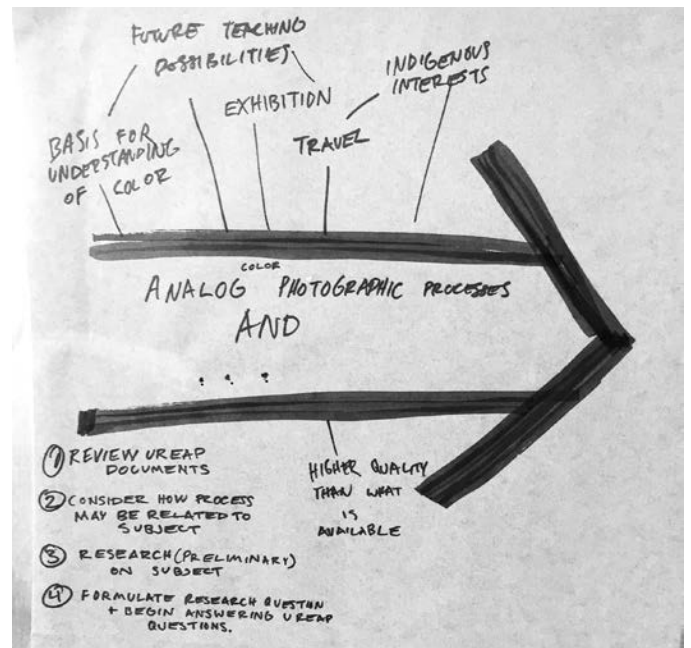 FUTURE TEACHING
POSSIBILITIES
INDIGENOUS
INTERESTS
EXHIBITION
TRAVEL
BASIS FOR
UNDERSTANDING
OF COLOR
COLOR
ANALOG PHOTOGRAPHIC PROCESSES
AND
...
① REVIEW UREAP
DOCUMENTS
② CONSIDER HOW PROCESS
MAY BE RELATED TO
SUBJECT
③ RESEARCH (PRELIMINARY)
ON SUBJECT
④ FORMULATE RESEARCH QUESTION
+ BEGIN ANSWERING UREAP
QUESTIONS.
HIGHER QUALITY
THAN WHAT
IS
AVAILABLE